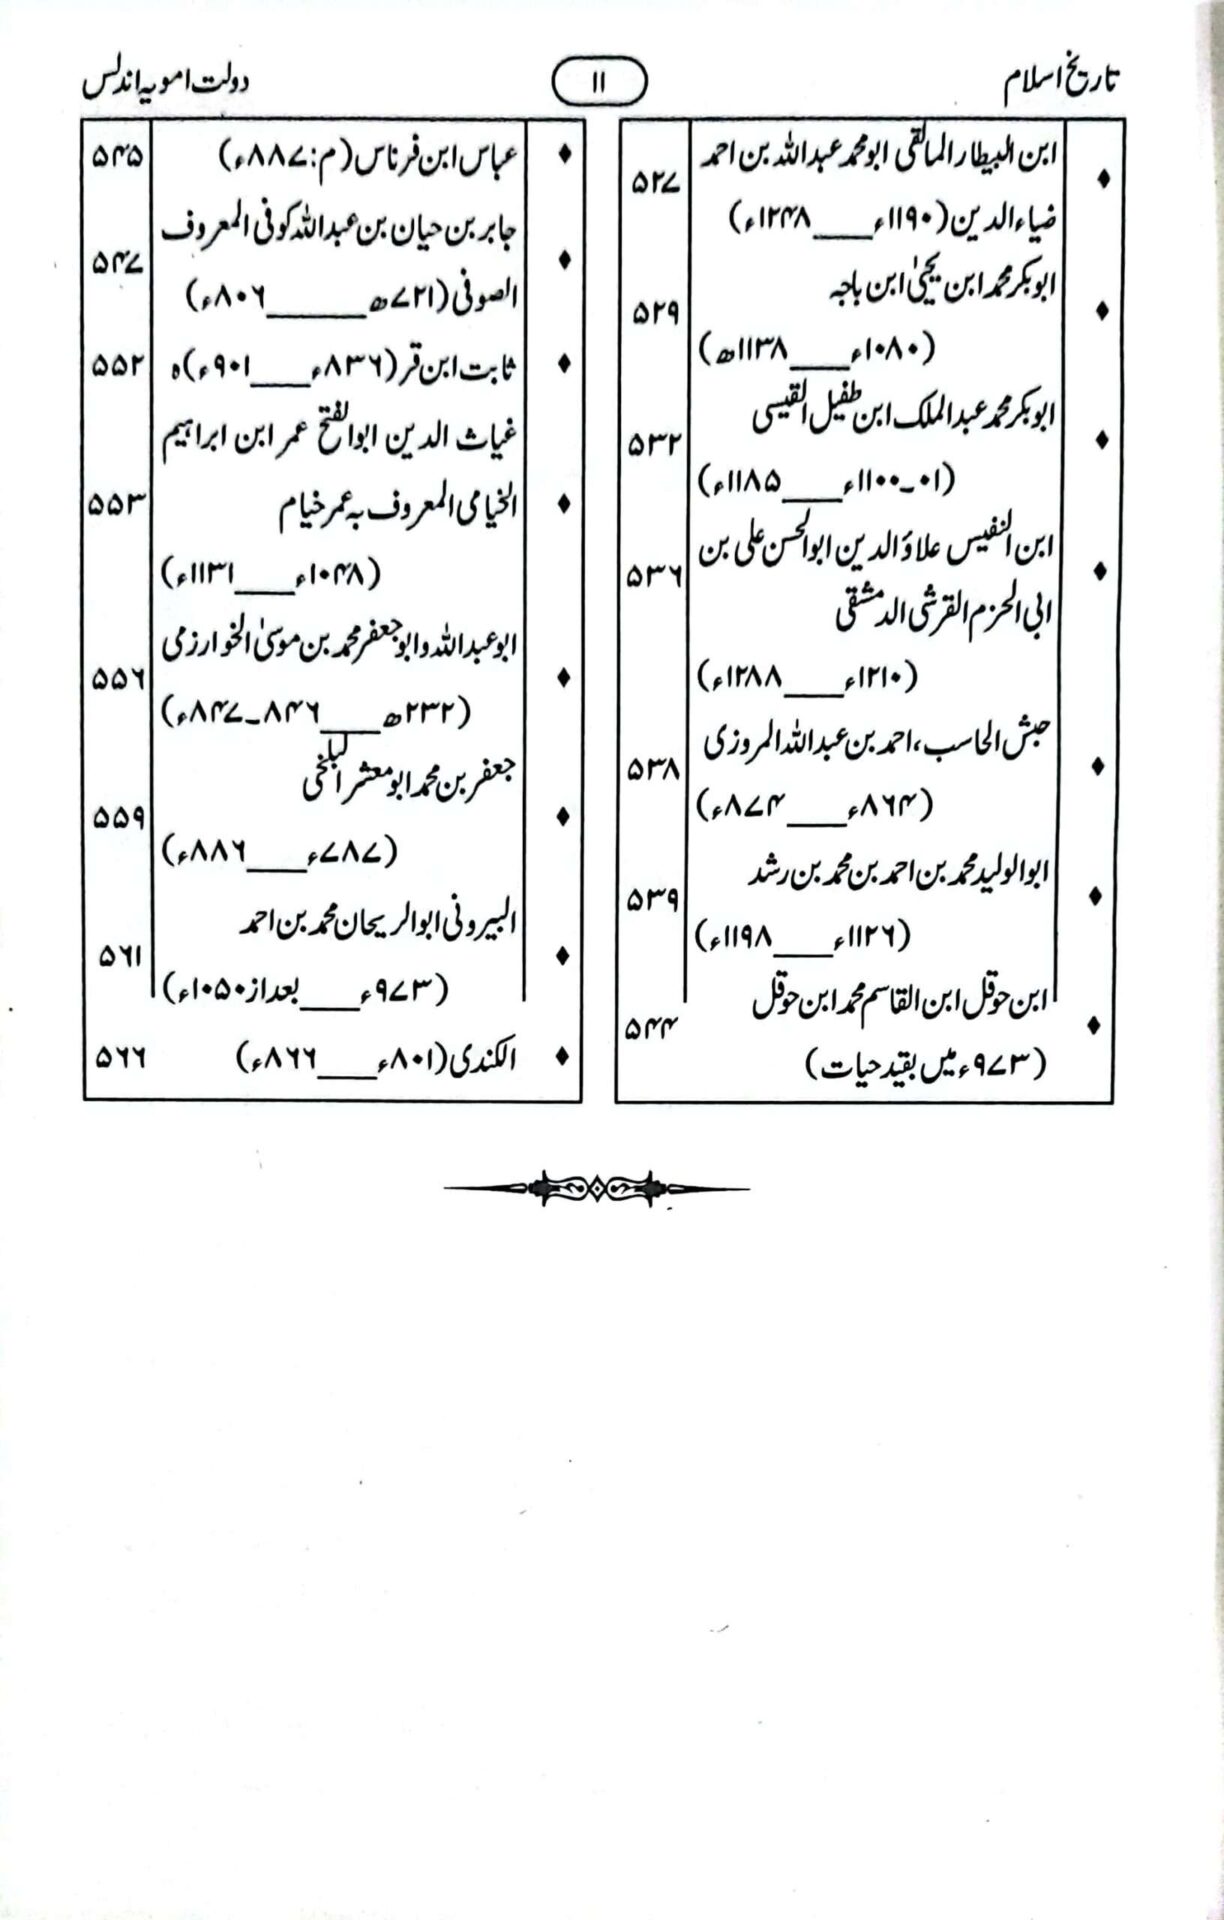 تاریخ اسلام
۱۱
دولت امویہ اندلس
ابن البیطار المالقی ابومحمد عبداللہ بن احمد
ضیاء الدین (۱۱۹۰ء____۱۲۴۸ء)
۵۲۷
ابوبکر محمد ابن یحییٰ ابن باجہ
(۱۰۸۰ء____۱۱۳۸ھ)
۵۲۹
ابوبکر محمد عبدالملک ابن طفیل القیسی
(۰۱-۱۱۰۰ء____۱۱۸۵ء)
۵۳۲
ابن النفیس علاؤ الدین ابوالحسن علی بن
ابی الحزم القرشی الدمشقی
(۱۲۱۰ء____۱۲۸۸ء)
۵۳۶
حبش الحاسب، احمد بن عبداللہ المروزی
(۸۶۴ء____۸۷۴ء)
۵۳۸
ابوالولید محمد بن احمد بن محمد بن رشد
(۱۱۲۶ء____۱۱۹۸ء)
۵۳۹
ابن حوقل ابن القاسم محمد ابن حوقل
(۹۷۳ء میں بقید حیات)
۵۴۴
عباس ابن فرناس (م: ۸۸۷ء)
۵۴۵
جابر بن حیان بن عبداللہ کوفی المعروف
الصوفی (۷۲۱ھ______۸۰۶ء)
۵۴۷
ثابت ابن قر (۸۳۶ء____۹۰۱ء)ہ
۵۵۲
غیاث الدین ابوالفتح عمر ابن ابراہیم
الخیامی المعروف بہ عمر خیام
(۱۰۴۸ء____۱۱۳۱ء)
۵۵۳
ابوعبداللہ وابوجعفر محمد بن موسیٰ الخوارزمی
(۲۳۲ھ____۸۴۶-۸۴۷ء)
۵۵۶
جعفر بن محمد ابومعشر البلخی
(۷۸۷ء____۸۸۶ء)
۵۵۹
البیرونی ابوالریحان محمد بن احمد
(۹۷۳ء____بعد از ۱۰۵۰ء)
۵۶۱
الکندی (۸۰۱ء____۸۶۶ء)
۵۶۶